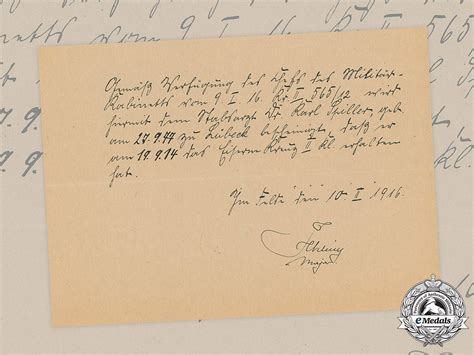 Gemäß Verfügung des Chefs des Militär-
Kabinetts vom 9. I. 16. Kr II 565/12 wird
hiermit dem Stabsarzt Dr. Karl Spiller, geb.
am 27.9.77 zu Lübeck bescheinigt, daß er
am 19.9.14 das Eiserne Kreuz II Kl. erhalten
hat.
Im Felde den 10. II 1916.
Major
eMedals